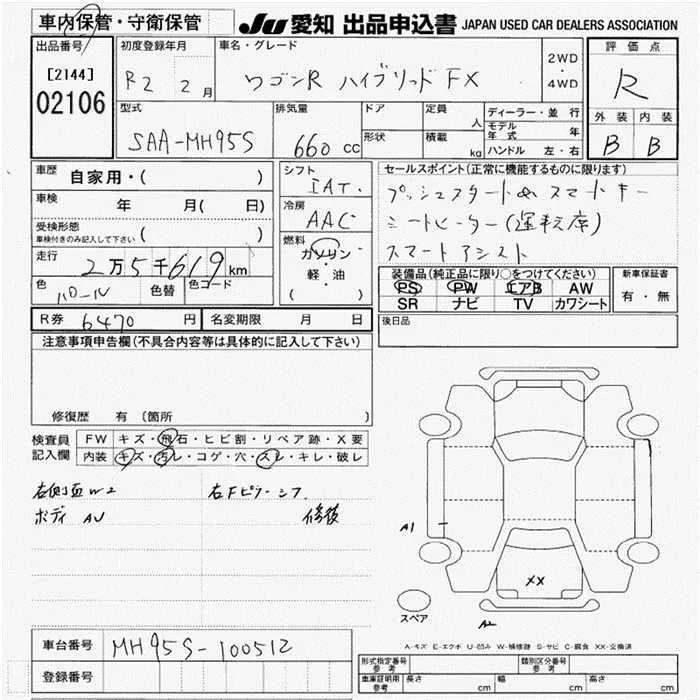 車内保管・守衛保管
JU 愛知 出品申込書 JAPAN USED CAR DEALERS ASSOCIATION
出品番号 初度登録年月 車名・グレード 評価点
[2144] R2 2月 ワゴンR ハイブリッド FX 2WD・4WD R
02106
型式 排気量 ドア 定員 人 ディーラー・並行 外装 内装
モデル年式 年
SAA-MH95S 660cc 形状 積載 kg ハンドル 左・右 B B
車歴 自家用・( ) シフト IAT. セールスポイント(正常に機能するものに限ります)
車検 年 月( 日) 冷房 AAC プッシュスタート& スマートキー
受検形態 車検付きのみ記入して下さい ( ) 燃料 ガソリン・軽・油 ( ) シートヒーター(運転席)
走行 2万5千619km スマートアシスト
色 パール 色替 色コード
装備品(純正品に限り○をつけてください) 新車保証書
PS PW エアB AW 有・無
SR ナビ TV カワシート
R券 6470円 名変期限 月 日 後日品
注意事項申告欄(不具合内容等は具体的に記入して下さい)
修復歴 有(箇所 )
検査員記入欄 FW キズ・飛石・ヒビ割・リペア跡・X要
内装 キズ・汚レ・コゲ・穴・スレ・キレ・破レ
右側面 W2 右Fピラーシワ
ボディ AU 修復
A1
XX
スペア
A2
A-キズ E-エクボ U-凹み W-補修跡 S-サビ C-腐食 XX-交換済
車台番号 MH95S-100512
登録番号
形式指定番号 参考 類別区分番号 参考
車庫証明用 参考 長さ cm 幅 cm 高さ cm